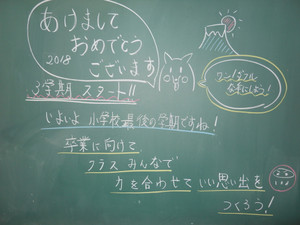 あけまして
おめでとう
2018
ございます
3学期 スタート!!
いよいよ 小学校最後の学期ですね!
卒業に向けて
クラス みんなで
力を合わせて いい思い出を
つくろう!